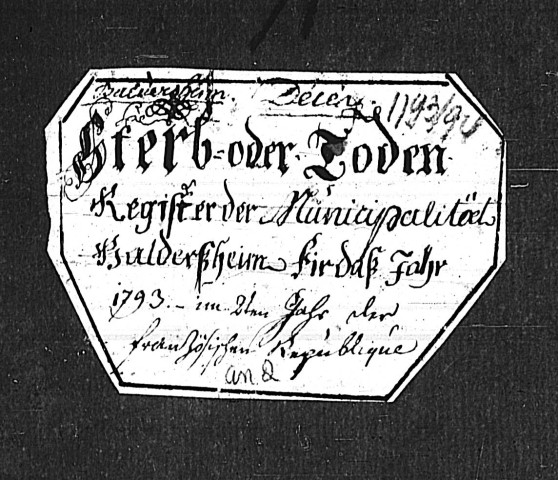 Baldersheim. Décès. 1793/94
Sterb- oder Toden
Register der Municipalitöet
Baldersheim fir daß Jahr
1793. im 2ten Jahr der
französischen Republique
an 2